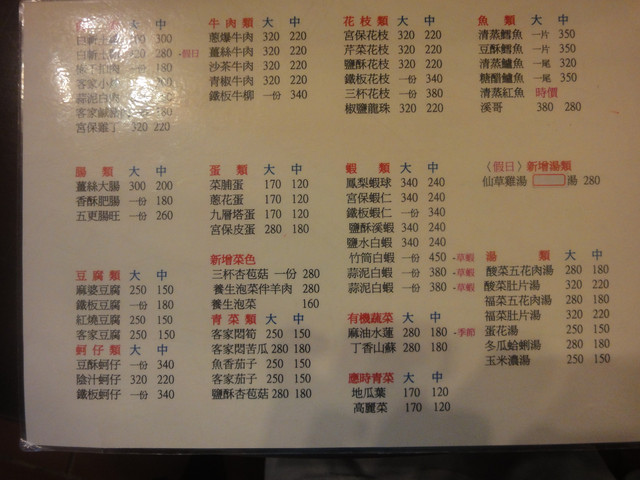 大 中
300
280 -假日
一份 180
客家小
蒜泥白
客家鹹
宮保雞丁 320 220
牛肉類 大 中
蔥爆牛肉 320 220
薑絲牛肉 320 220
沙茶牛肉 320 220
青椒牛肉 320 220
鐵板牛柳 一份 340
花枝類 大 中
宮保花枝 320 220
芹菜花枝 320 220
鹽酥花枝 320 220
鐵板花枝 一份 340
三杯花枝 一份 380
椒鹽龍珠 320 220
魚類 大 中
清蒸鱈魚 一片 350
豆酥鱈魚 一片 350
清蒸鱸魚 一尾 320
糖醋鱸魚 一尾 350
清蒸紅魚 時價
溪哥 380 280
腸類 大 中
薑絲大腸 300 200
香酥肥腸 一份 180
五更腸旺 一份 260
蛋類 大 中
菜脯蛋 170 120
蔥花蛋 170 120
九層塔蛋 170 120
宮保皮蛋 280 180
蝦類 大 中
鳳梨蝦球 340 240
宮保蝦仁 340 240
鐵板蝦仁 一份 340
鹽酥溪蝦 340 240
鹽水白蝦 340 240
竹筒白蝦 一份 450 -草蝦
蒜泥白蝦 一份 380 -草蝦
蒜泥白蝦 一份 380 -草蝦
〈假日〉新增湯類
仙草雞湯 湯 280
豆腐類 大 中
麻婆豆腐 250 150
鐵板豆腐 一份 180
紅燒豆腐 250 150
客家豆腐 250 150
蚵仔類 大 中
豆酥蚵仔 一份 340
陰汁蚵仔 320 220
鐵板蚵仔 一份 340
新增菜色
三杯杏苞菇 一份 280
養生泡菜伴羊肉 280
養生泡菜 160
青菜類 大 中
客家悶筍 250 150
客家悶苦瓜 280 180
魚香茄子 250 150
客家茄子 250 150
鹽酥杏苞菇 280 180
有機蔬菜 大 中
麻油水蓮 280 180 -季節
丁香山蘇 280 180
應時青菜 大 中
地瓜葉 170 120
高麗菜 170 120
湯類 大 中
酸菜五花肉湯 280 180
酸菜肚片湯 320 220
福菜五花肉湯 280 180
福菜肚片湯 320 220
蛋花湯 250 150
冬瓜蛤蜊湯 280 180
玉米濃湯 250 150